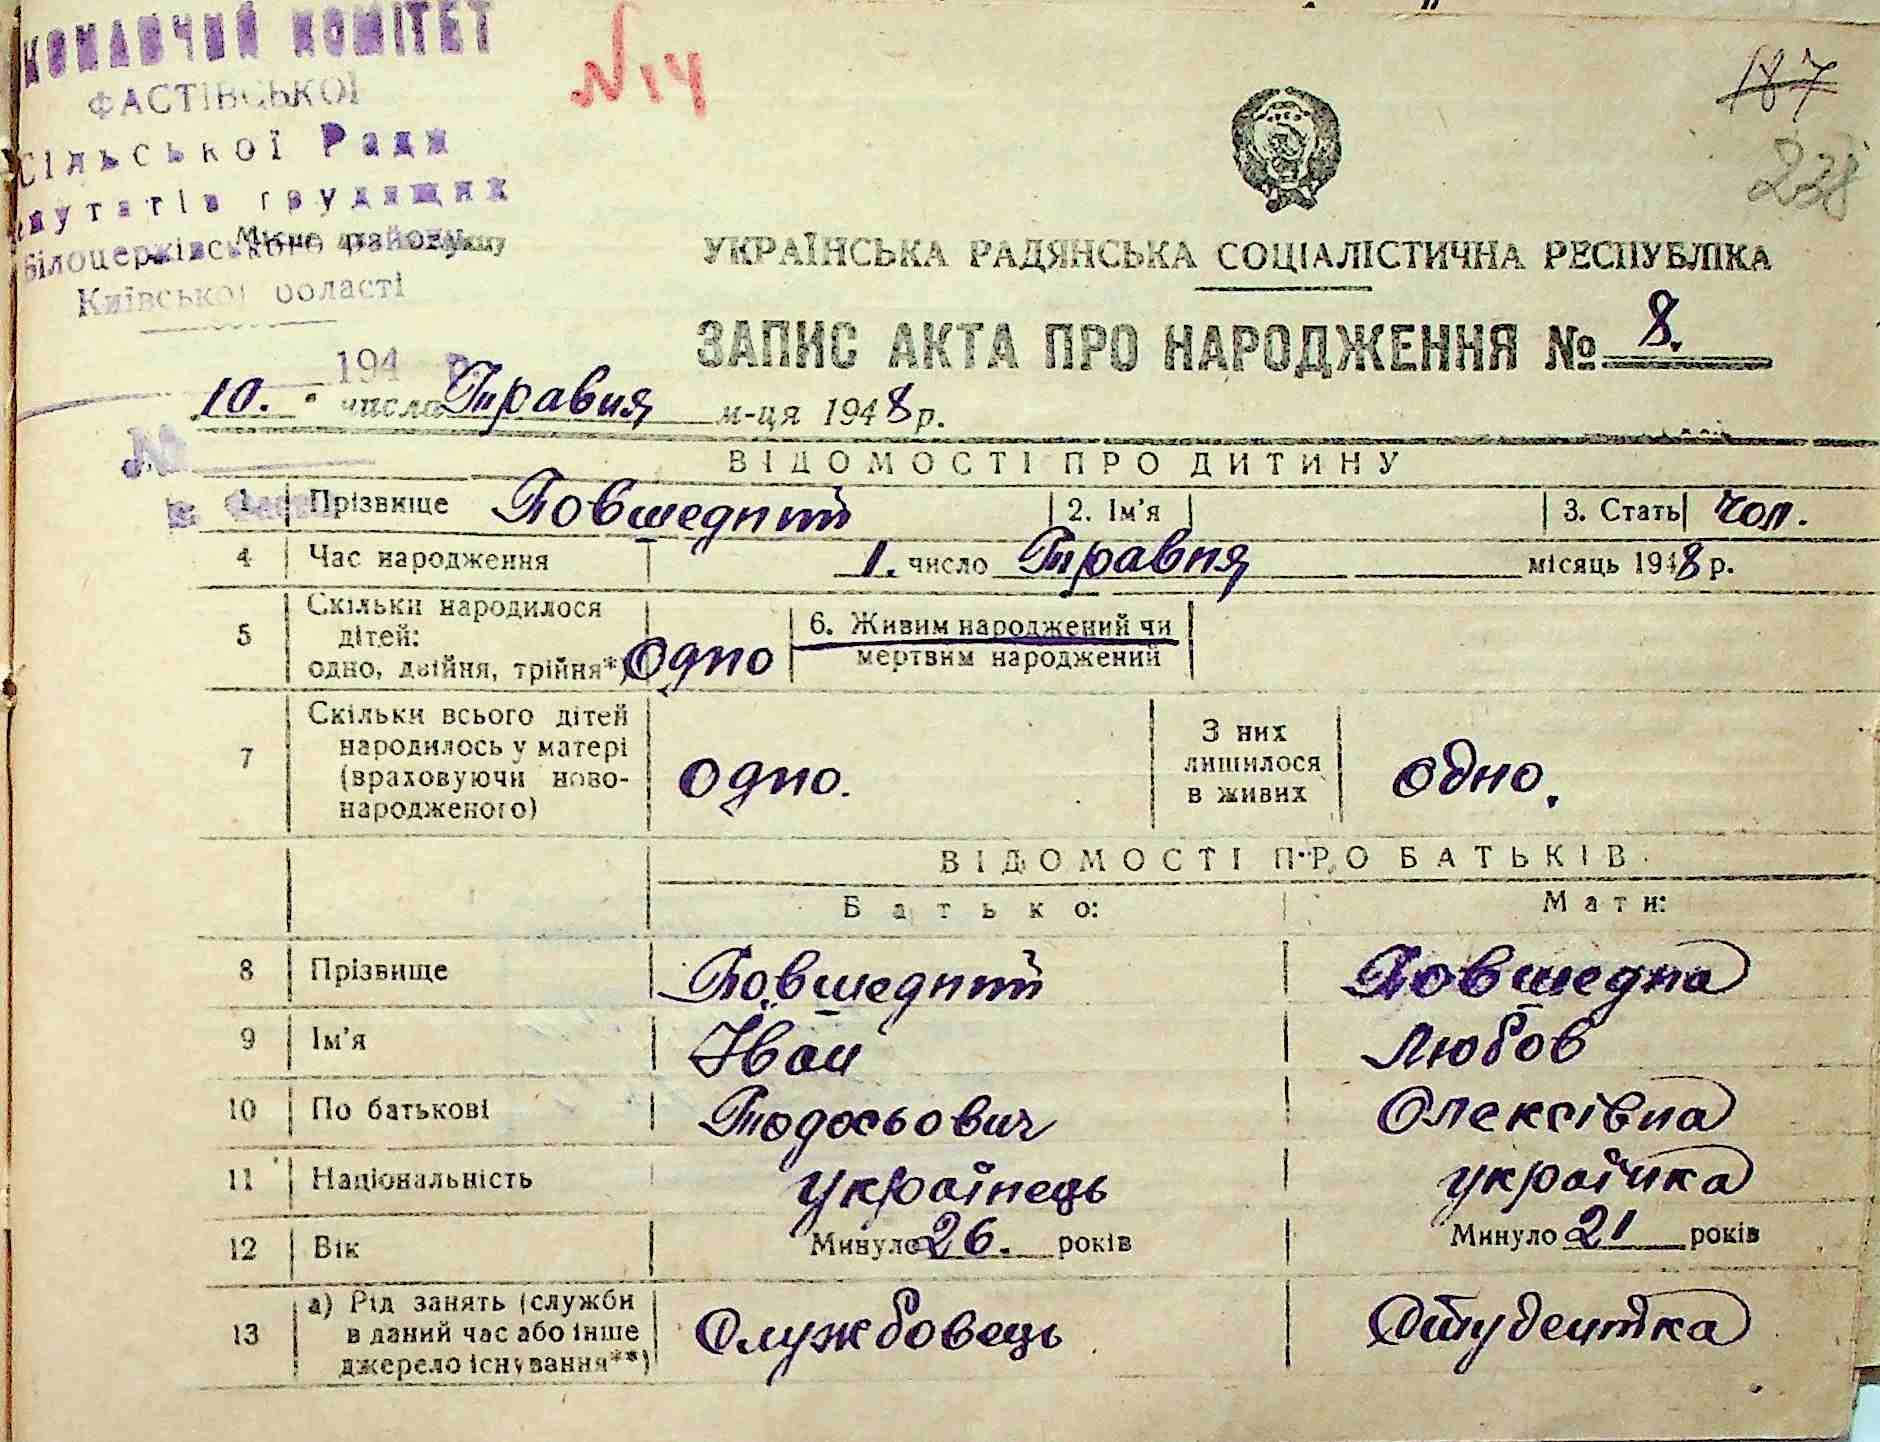 КОНАВЧИЙ КОМІТЕТ
ФАСТІВСЬКОЇ
Сільської Ради
епутатів трудящих
Білоцерківського району
Київської області
194 р.
№
с. Фастівка
№14
187
238
УКРАЇНСЬКА РАДЯНСЬКА СОЦІАЛІСТИЧНА РЕСПУБЛІКА
ЗАПИС АКТА ПРО НАРОДЖЕННЯ № 8.
10. числа Травня м-ця 1948 р.
ВІДОМОСТІ ПРО ДИТИНУ
1 Прізвище Повшедний 2. Ім'я 3. Стать чол.
4 Час народження 1. число Травня місяць 1948 р.
5 Скільки народилося дітей: одно, двійня, трійня*) Одно 6. Живим народжений чи мертвим народжений
7 Скільки всього дітей народилось у матері (враховуючи ново-народженого) одно. З них лишилося в живих одно.
ВІДОМОСТІ ПРО БАТЬКІВ
Батько: Мати:
8 Прізвище Повшедний Повшедна
9 Ім'я Іван Любов
10 По батькові Тодосьович Олексівна
11 Національність українець українка
12 Вік Минуло 26. років Минуло 21 років
13 а) Рід занять (служби в даний час або інше джерело існування**) Службовець Студентка